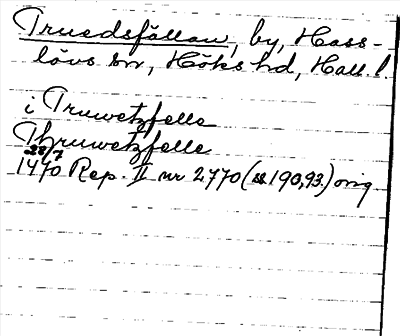 Truedsfällan, by, Hass-
lövs sn, Höks hd, Hall. l.
i Truwetzfelle
Thruwetzfelle
28/7
1470 Rep. II nr 2770 (s 190, 93.) orig